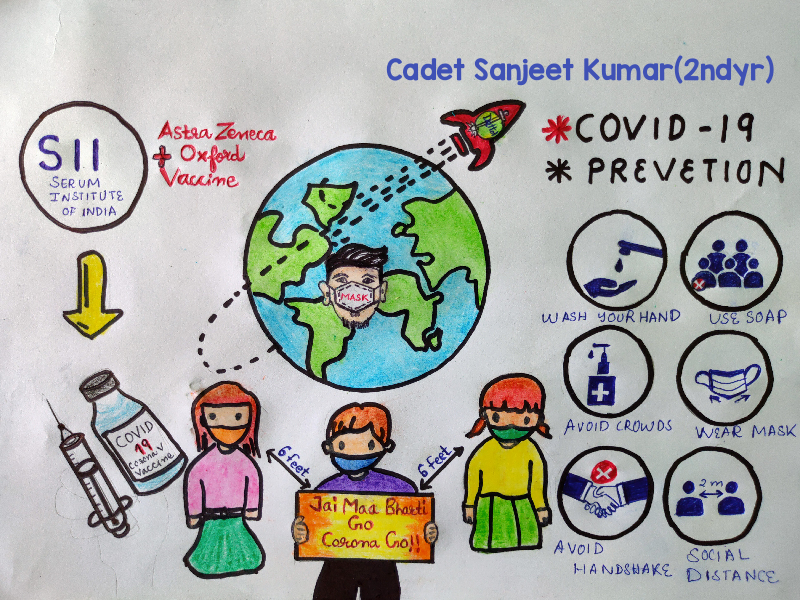 Cadet Sanjeet Kumar(2ndyr)
SII
SERUM
INSTITUTE
OF INDIA
Astra Zeneca
+ Oxford
Vaccine
* COVID-19
* PREVETION
MASK
WASH YOUR HAND
USE SOAP
AVOID CROWDS
WEAR MASK
AVOID
HANDSHAKE
2m
SOCIAL
DISTANCE
COVID
19
Corona V
Vaccine
6 feet
6 feet
Jai Maa Bharti
Go
Corona Go!!